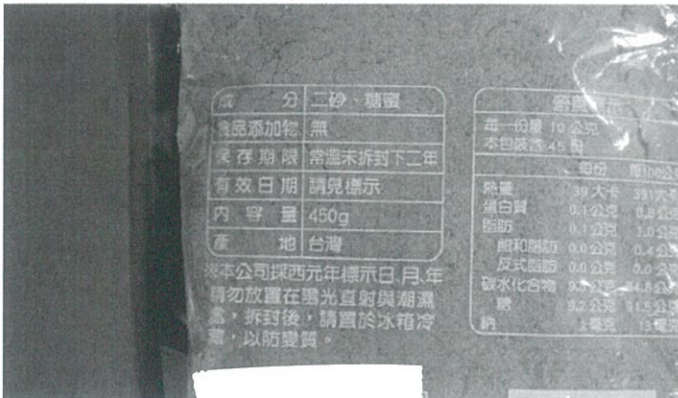 成分 二砂、糖蜜
食品添加物 無
保存期限 常溫未拆封下二年
有效日期 請見標示
內容量 450g
產地 台灣
※本公司採西元年標示日.月.年
請勿放置在陽光直射與潮濕
處，拆封後，請置於冰箱冷
藏，以防變質。
每一份量 10 公克
本包裝含 45 份
每份 每100公克
熱量 39 大卡 391大卡
蛋白質 0.1公克 0.8公克
脂肪 0.1公克 1.0公克
飽和脂肪 0.0公克 0.4公克
反式脂肪 0.0公克 0.0公克
碳水化合物
糖 9.2公克 91.5公克
鈉